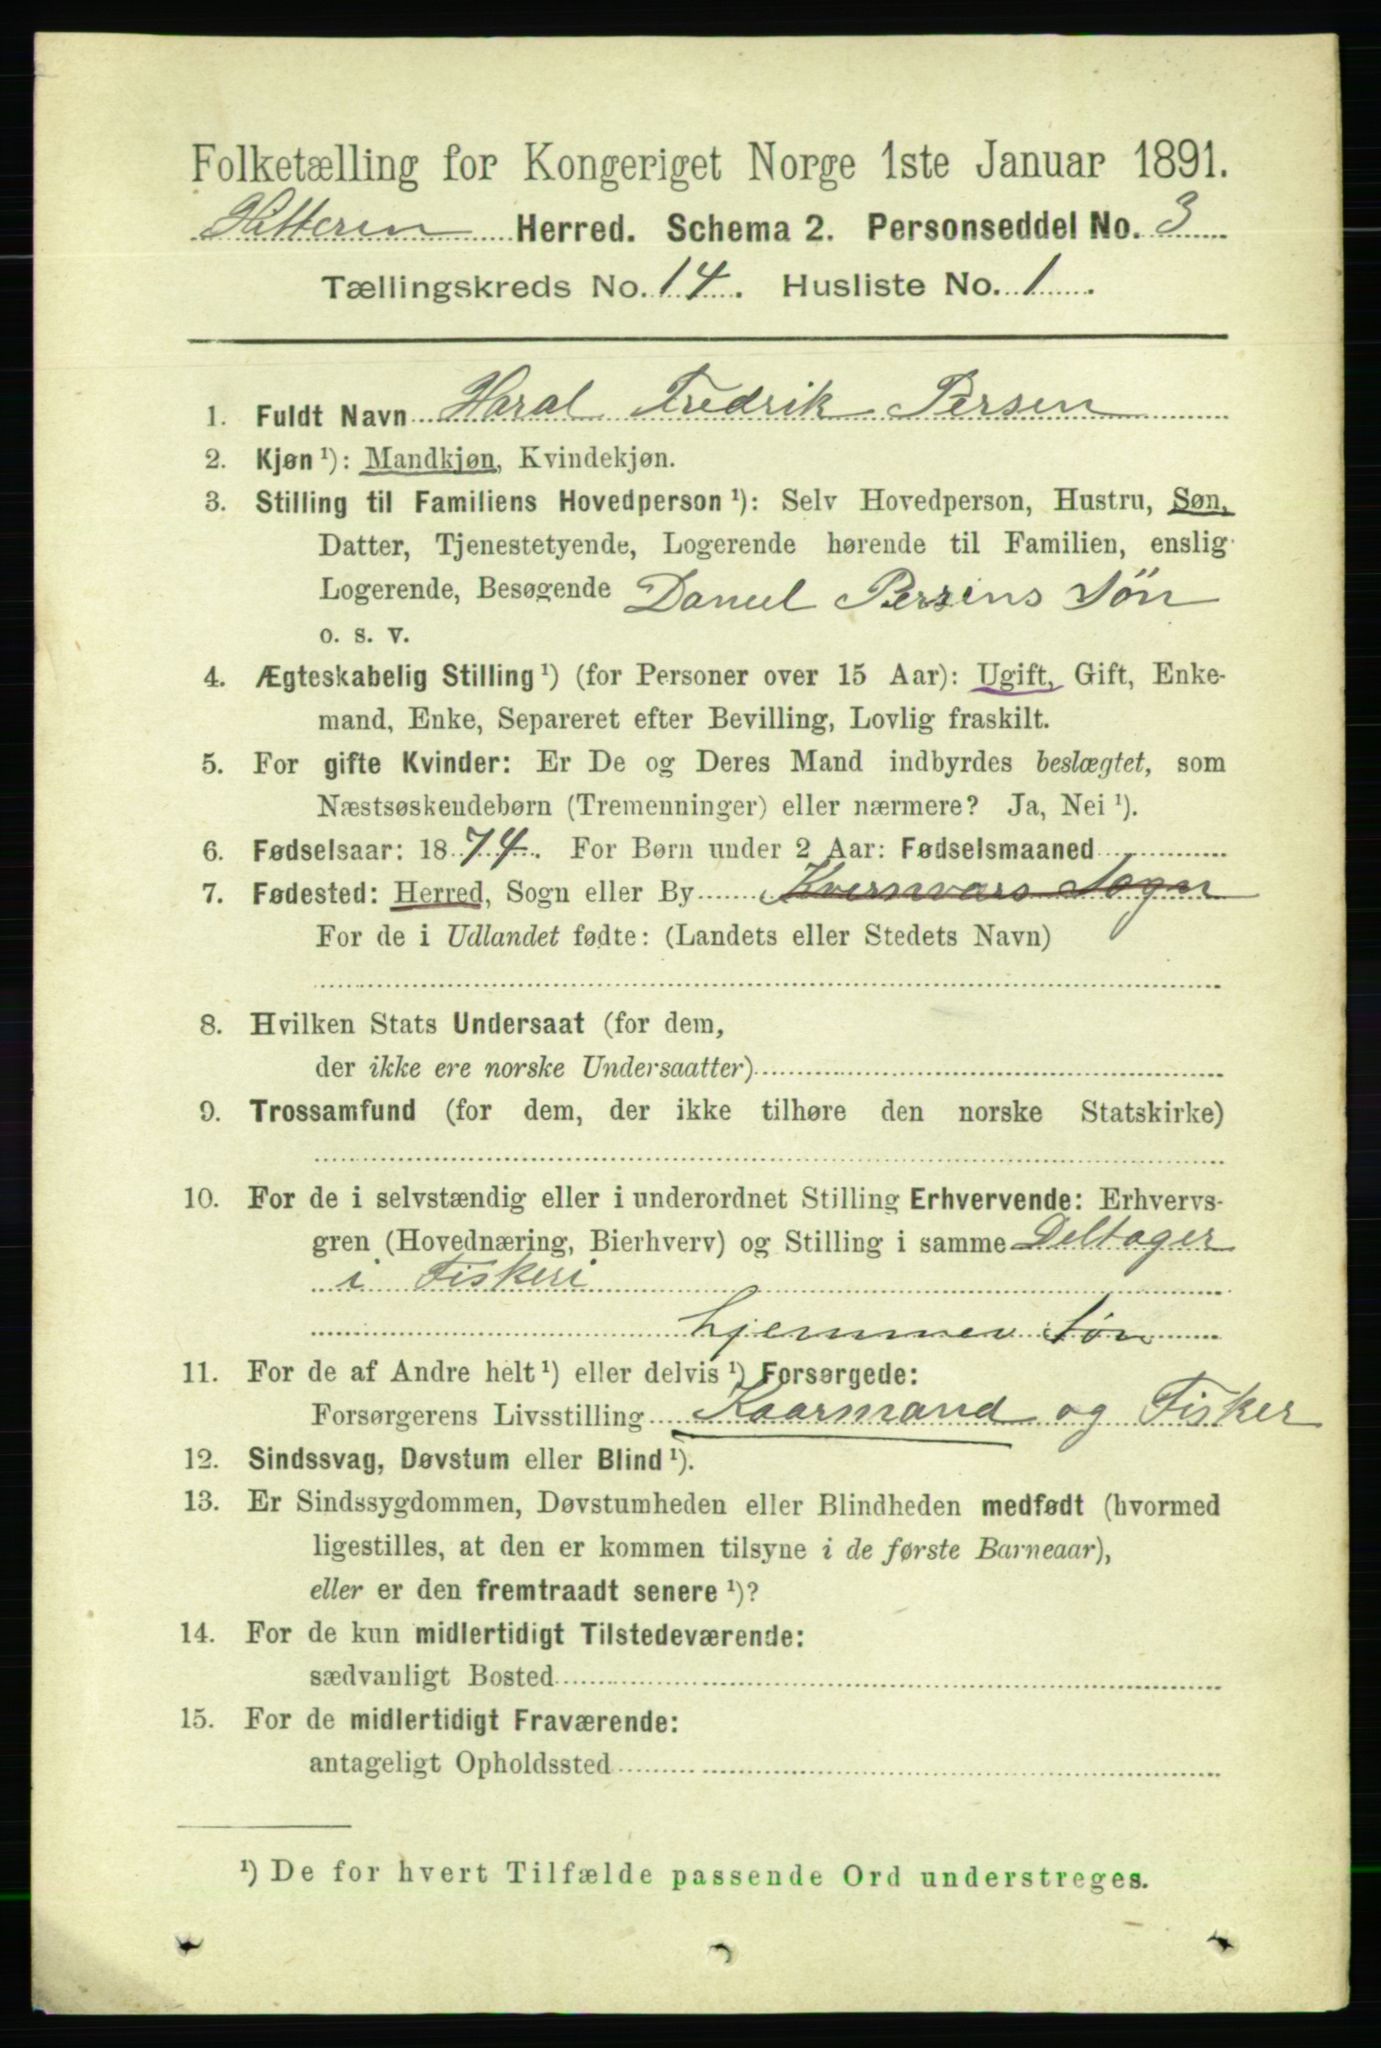 Folketælling for Kongeriget Norge 1ste Januar 1891.
Hitteren Herred. Schema 2. Personseddel No. 3
Tællingskreds No. 14. Husliste No. 1.
1. Fuldt Navn Haral Fredrik Persen
2. Kjøn ¹): Mandkjøn, Kvindekjøn.
3. Stilling til Familiens Hovedperson ¹): Selv Hovedperson, Hustru, Søn,
Datter, Tjenestetyende, Logerende hørende til Familien, enslig
Logerende, Besøgende Daniel Persens Søn
o. s. v.
4. Ægteskabelig Stilling ¹) (for Personer over 15 Aar): Ugift, Gift, Enke-
mand, Enke, Separeret efter Bevilling, Lovlig fraskilt.
5. For gifte Kvinder: Er De og Deres Mand indbyrdes beslægtet, som
Næstsøskendebørn (Tremenninger) eller nærmere? Ja, Nei ¹).
6. Fødselsaar: 1874. For Børn under 2 Aar: Fødselsmaaned
7. Fødested: Herred, Sogn eller By Kvernvars Sogn
For de i Udlandet fødte: (Landets eller Stedets Navn)
8. Hvilken Stats Undersaat (for dem,
der ikke ere norske Undersaatter)
9. Trossamfund (for dem, der ikke tilhøre den norske Statskirke)
10. For de i selvstændig eller i underordnet Stilling Erhvervende: Erhvervs-
gren (Hovednæring, Bierhverv) og Stilling i samme Deltager
i Fiskeri
hjemmev. Søn
11. For de af Andre helt ¹) eller delvis ¹) Forsørgede:
Forsørgerens Livsstilling Kaarmand og Fisker
12. Sindssvag, Døvstum eller Blind ¹).
13. Er Sindssygdommen, Døvstumheden eller Blindheden medfødt (hvormed
ligestilles, at den er kommen tilsyne i de første Barneaar),
eller er den fremtraadt senere ¹)?
14. For de kun midlertidigt Tilstedeværende:
sædvanligt Bosted
15. For de midlertidigt Fraværende:
antageligt Opholdssted
¹) De for hvert Tilfælde passende Ord understreges.